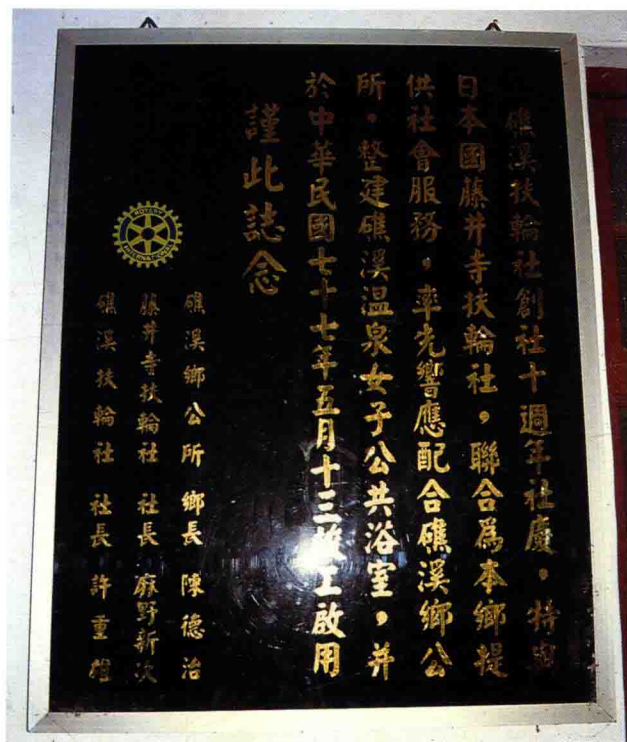 礁溪扶輪社創社十週年社慶，特與
日本國藤井寺扶輪社，聯合為本鄉提
供社會服務，率先響應配合礁溪鄉公
所，整建礁溪溫泉女子公共浴室，并
於中華民國七十七年五月十三竣工啟用
謹此誌念
ROTARY INTERNATIONAL
礁溪鄉公所 鄉長 陳德治
藤井寺扶輪社 社長 麻野新次
礁溪扶輪社 社長 許重雄